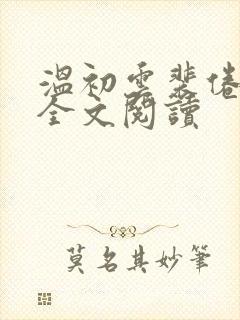 溫初雲裴倦
全文閱讀
莫名其妙筆